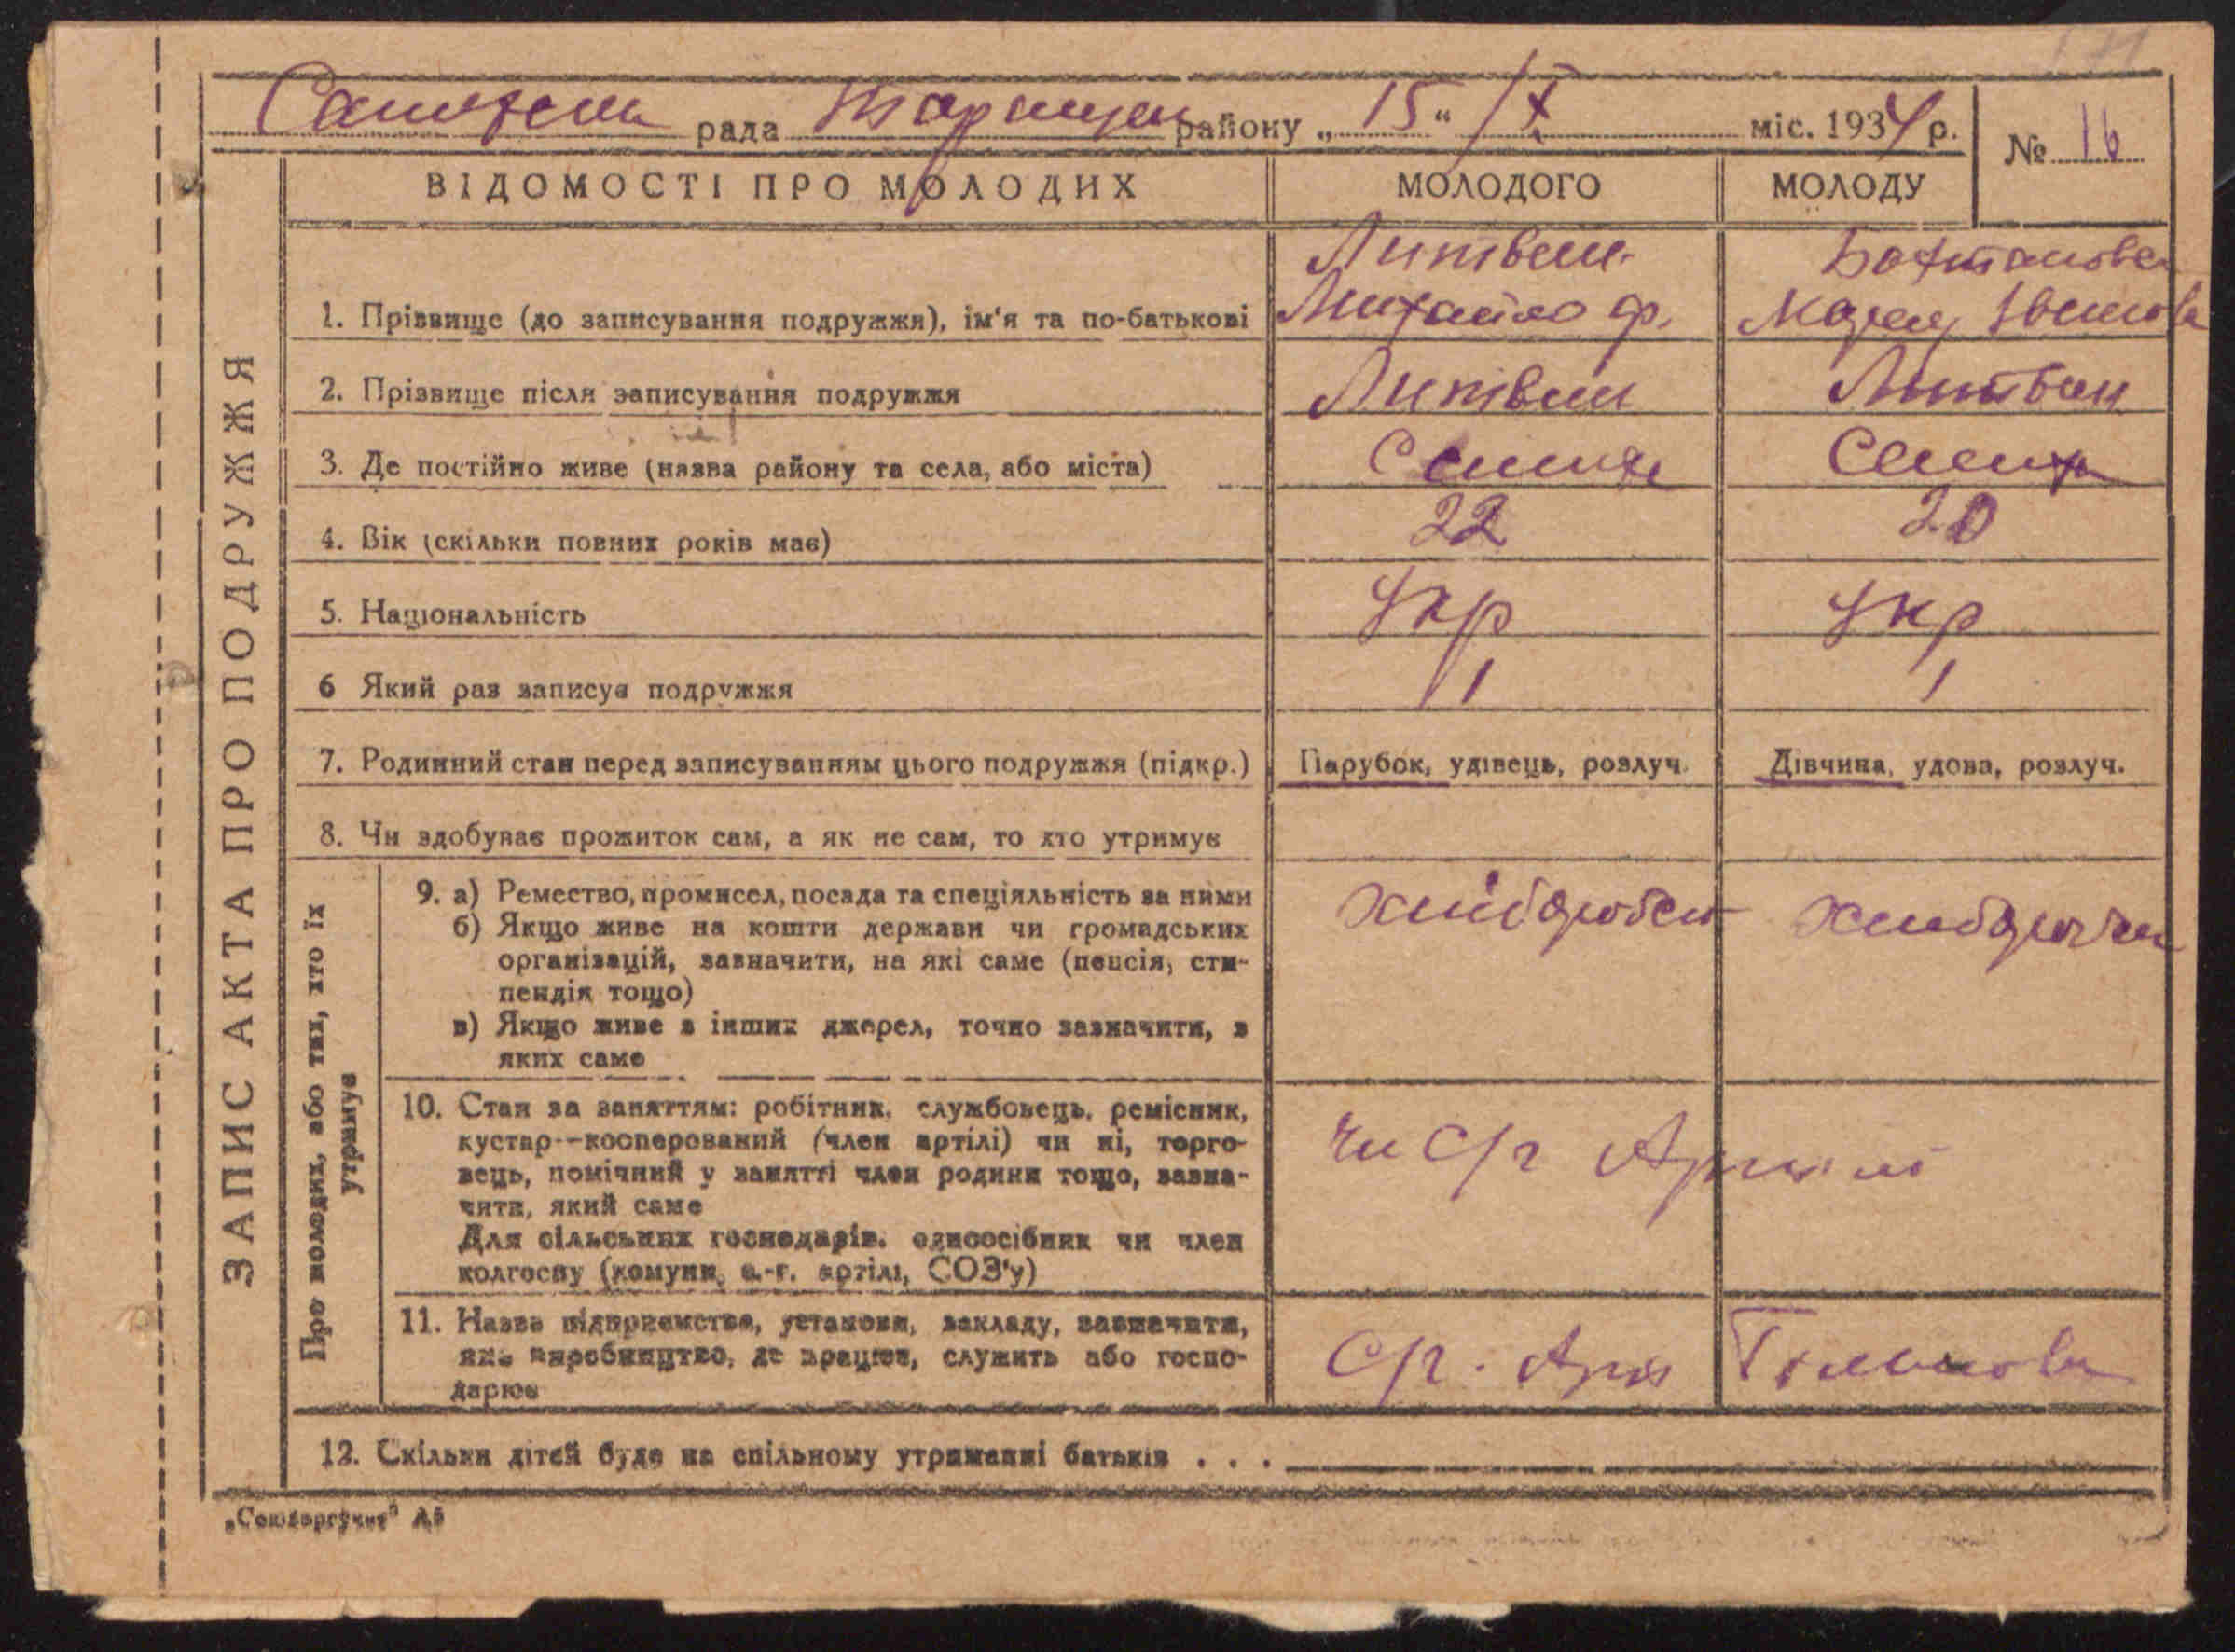 рада району „ 15 “ /X міс. 1934 р.
№ 16
ВІДОМОСТІ ПРО МОЛОДИХ МОЛОДОГО МОЛОДУ
ЗАПИС АКТА ПРО ПОДРУЖЖЯ
Литвин
1. Прізвище (до записування подружжя), ім'я та по-батькові Михайло Ф.
2. Прізвище після записування подружжя Литвин Литвин
3. Де постійно живе (назва району та села, або міста)
4. Вік (скільки повних років має) 22 20
5. Національність Укр Укр
6 Який раз записує подружжя 1 1
7. Родинний стан перед записуванням цього подружжя (підкр.) Парубок, удівець, розлуч. Дівчина, удова, розлуч.
8. Чи здобуває прожиток сам, а як не сам, то хто утримує
Про молодих, або тих, хто їх
утримує
9. а) Ремество, промисел, посада та спеціяльність за ними
б) Якщо живе на кошти держави чи громадських
організацій, зазначити, на які саме (пенсія, сти-
пендія тощо)
в) Якщо живе з інших джерел, точно зазначити, з
яких саме
10. Стан за заняттям: робітник, службовець, ремісник,
кустар--кооперований (член артілі) чи ні, торго-
вець, помічний у занятті член родини тощо, зазна-
чити, який саме
Для сільських господарів: одноосібник чи член
колгоспу (комуни, с.-г. артілі, СОЗ'у)
чл С/г Артілі
11. Назва підприємства, установи, закладу, зазначити,
яке виробництво, де працює, служить або госпо-
дарює
С/г. Арт
12. Скільки дітей буде на спільному утриманні батьків . . .